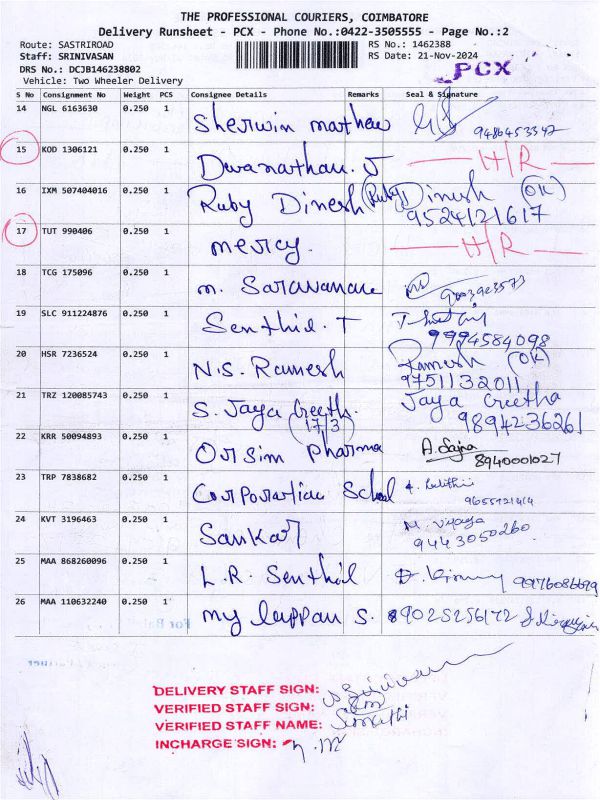 THE PROFESSIONAL COURIERS, COIMBATORE
Delivery Runsheet - PCX - Phone No.:0422-3505555 - Page No.:2
Route: SASTRIROAD RS No.: 1462388
Staff: SRINIVASAN RS Date: 21-Nov-2024
DRS No.: DCJB146238802 PCX
Vehicle: Two Wheeler Delivery
S No Consignment No Weight PCS Consignee Details Remarks Seal & Signature
14 NGL 6163630 0.250 1 Sherwin mathew 9486453347
15 KOD 1306121 0.250 1 Dwanathan. J H/R
16 IXM 507404016 0.250 1 Ruby Dinesh (Ruby) Dinesh (OK)
9524121617
17 TUT 990406 0.250 1 mercy. H/R
18 TCG 175096 0.250 1 m. Saravanan 9003923573
19 SLC 911224876 0.250 1 Senthil. T
9994584098
20 HSR 7236524 0.250 1 N.S. Ramesh Ramesh (OK)
9751132011
21 TRZ 120085743 0.250 1 S. Jaya Greetha Jaya Greetha
(17/3) 9894236261
22 KRR 50094893 0.250 1 Orsim Pharma A. Sajna
8940001027
23 TRP 7838682 0.250 1 Corporation School
24 KVT 3196463 0.250 1 Sankar M. Vijaya
9443050260
25 MAA 868260096 0.250 1 L.R. Senthil
26 MAA 110632240 0.250 1 my lappan S. 89025256172
DELIVERY STAFF SIGN:
VERIFIED STAFF SIGN:
VERIFIED STAFF NAME: Sumathi
INCHARGE SIGN: